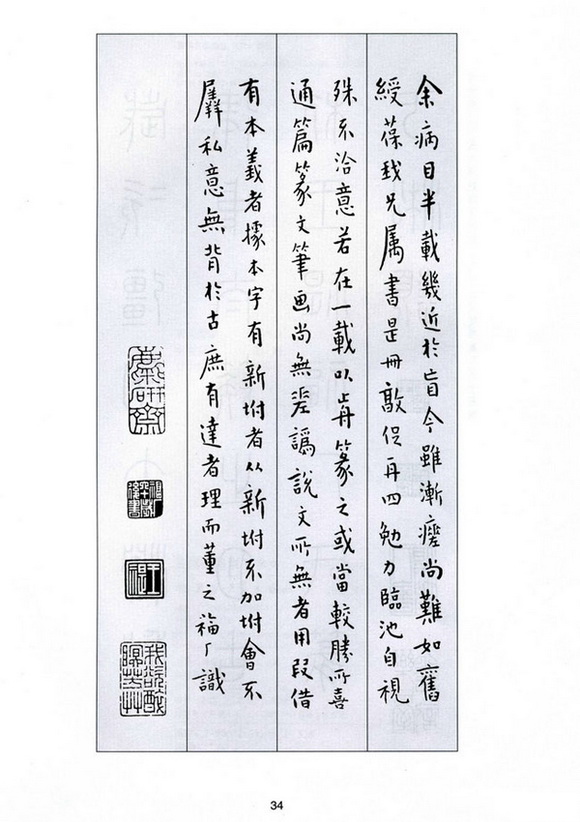 余病目半載幾近於盲今雖漸瘥尚難如舊
綬葆我兄属書是冊敦促再四勉力臨池自視
殊不洽意若在一載以歬篆之或當較勝所喜
通篇篆文筆画尚無差譌說文所無者用叚借
有本義者據本字有新坿者从新坿不加坿會不
羼私意無背於古庶有達者理而董之福厂識
麋研齋
王禔
我欲醉眠芳草
34